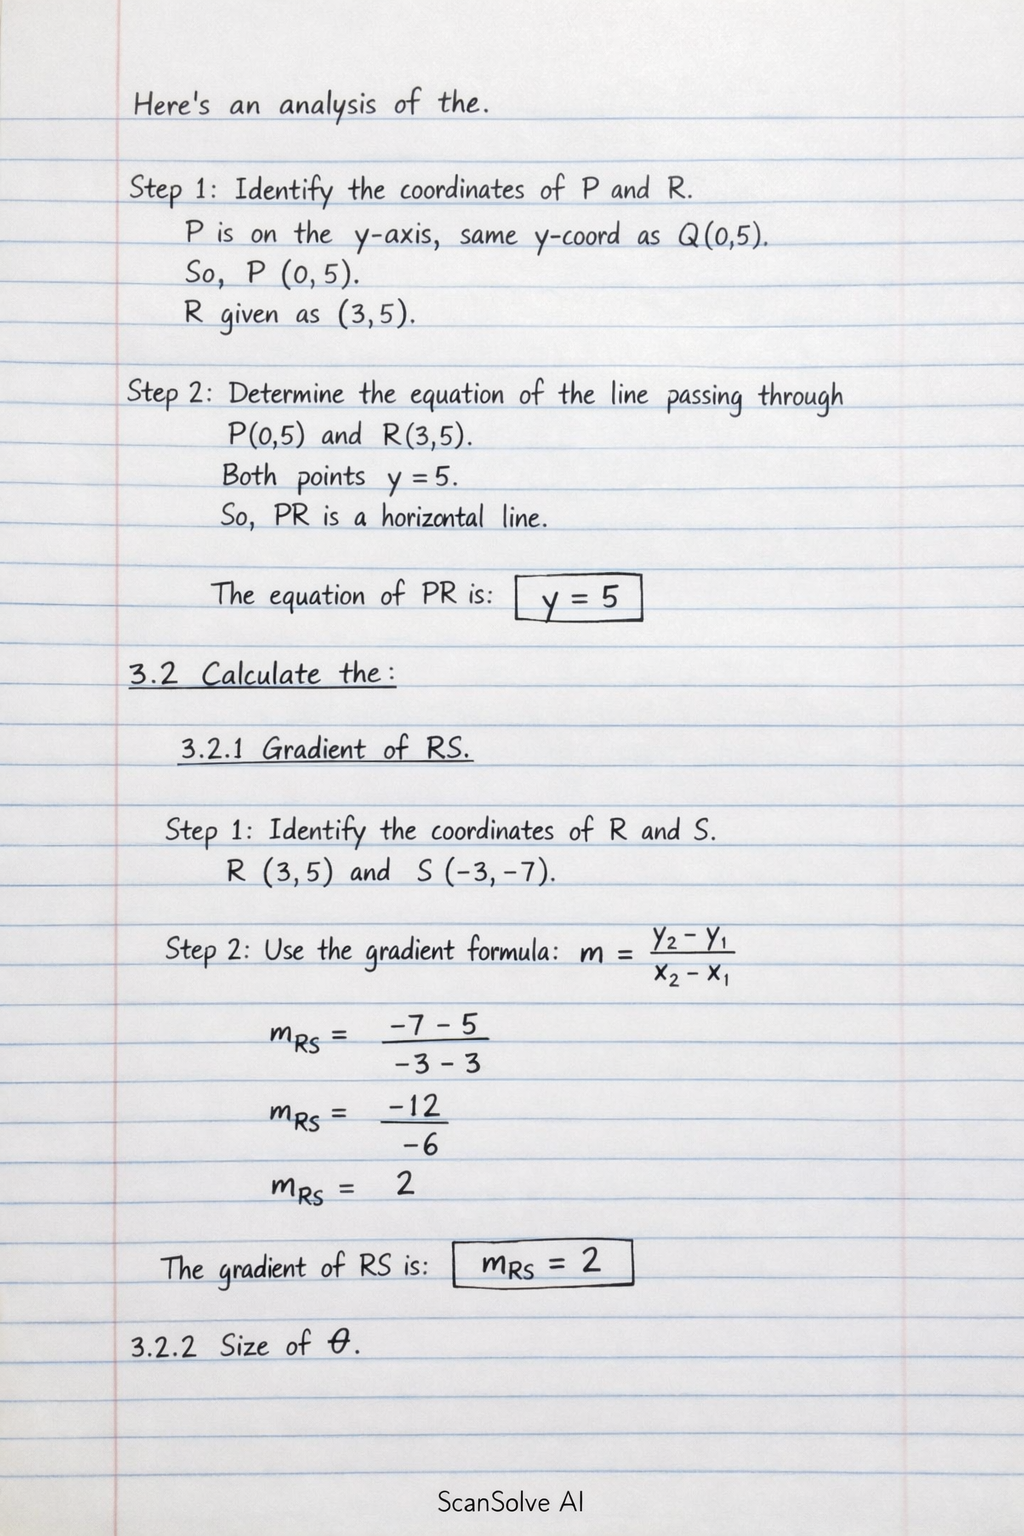 Here's an analysis of the.
Step 1: Identify the coordinates of P and R.
P is on the y-axis, same y-coord as Q(0,5).
So, P (0, 5).
R given as (3,5).
Step 2: Determine the equation of the line passing through
P(0,5) and R(3,5).
Both points y = 5.
So, PR is a horizontal line.
The equation of PR is: y = 5
3.2 Calculate the:
3.2.1 Gradient of RS.
Step 1: Identify the coordinates of R and S.
R (3,5) and S (-3, -7).
Step 2: Use the gradient formula: m = (y₂ - y₁)/(x₂ - x₁)
m_RS = (-7 - 5)/(-3 - 3)
m_RS = -12/-6
m_RS = 2
The gradient of RS is: m_RS = 2
3.2.2 Size of θ.
ScanSolve AI